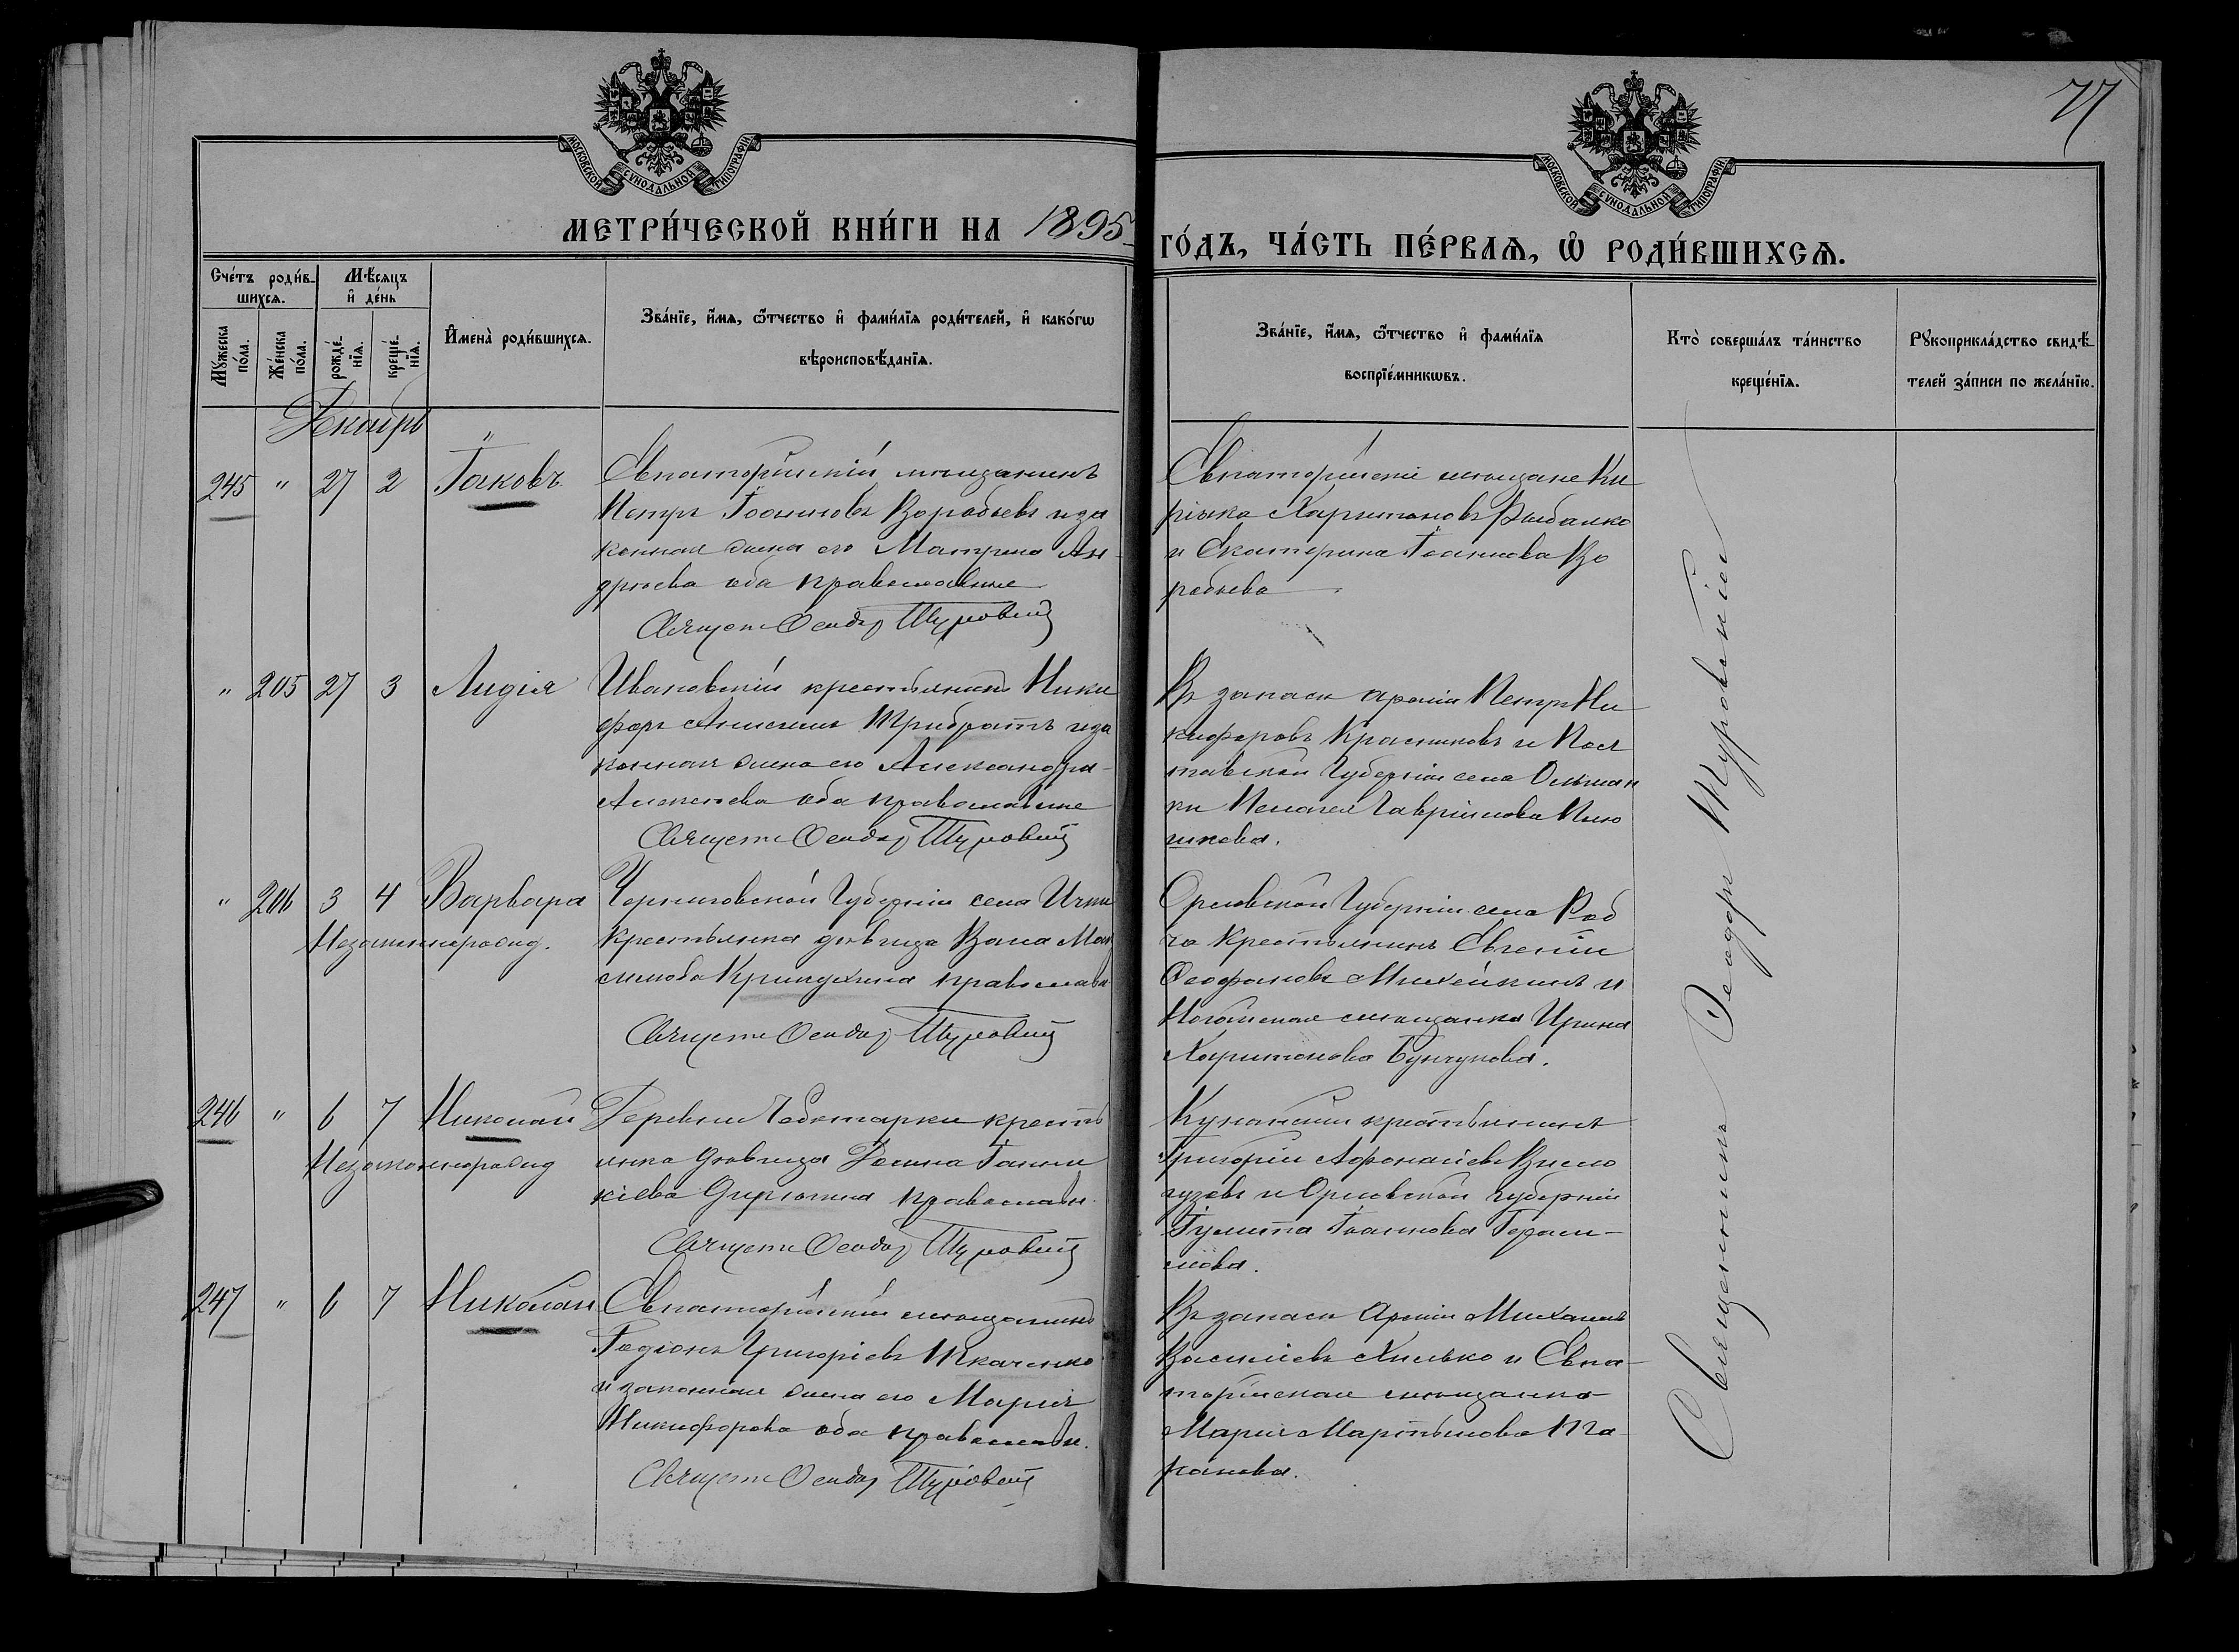 77
МОСКОВСКОЙ СѴНОДАЛЬНОЙ ТИПОГРАФІИ.
МОСКОВСКОЙ СѴНОДАЛЬНОЙ ТИПОГРАФІИ.
МЕТРИ́ЧЕСКОЙ КНИ́ГИ НА 1895
ГО́ДЪ, ЧА́СТЬ ПЕ́РВАѦ, Ѽ РОДИ́ВШИХСѦ.
Сче́тъ роди́в-
шихсѧ.
Мѣ́сѧцъ
и҆ де́нь
Мꙋ́жеска
по́ла.
Же́нска
по́ла.
рожде́-
нїѧ.
креще́-
нїѧ.
И҆мена̀ роди́вшихсѧ.
Зва́нїе, и҆́мѧ, ѻ҆́тчество и҆ фами́лїѧ роди́телей, и҆ како́гѡ
вѣроисповѣ́данїѧ.
Зва́нїе, и҆́мѧ, ѻ҆́тчество и҆ фами́лїѧ
воспрїе́мникѡвъ.
Кто̀ соверша́лъ та́инство
креще́нїѧ.
Рꙋкоприкла́дство свидѣ́-
телей за́писи по жела́нїю.
Декабрь
245 " 27 2 Іаковъ
Евпаторійскій мѣщанинъ
Петръ Іоанновъ Воробьевъ и за
конная жена его Матрона Ан-
дреева оба православные
Священ. Ѳеодоръ Шуровскій
Евпаторійскіе мѣщане Ки
ріакъ Харитоновъ Рыбалко
и Екатерина Іоаннова Во
робьева
" 205 27 3 Лидія
Ивановскій крестьянинъ Ники
форъ Анисимовъ Трибратъ и за
конная жена его Александра
Алексѣева оба православные
Священ. Ѳеодоръ Шуровскій
Въ запасѣ арміи Петръ Ни
кифоровъ Красниковъ и Пол
тавской Губерніи села Ольшан
ки Пелагея Гавріилова
" 206 3 4 Варвара
Незаконнорожд.
Черниговской Губерніи села Ични
Крестьянка дѣвица Васса Мак
симова православн
Священ. Ѳеодоръ Шуровскій
Орловской Губерніи села
Крестьянинъ Евгеній
Ѳеофановъ Михейкинъ и
Ногайская мѣщанка Ирина
Харитонова Бунчукова.
246 " 6 7 Николай
Незаконнорожд
Деревни Чеботарки кресть
янка дѣвица Домна Іоанни
кіева Дирюгина православн.
Священ. Ѳеодоръ Шуровскій
крестьянинъ
Григорій Афонасіевъ Вило
гузовъ и Орловской губерніи
Іулитта Іоаннова Гераси-
мова.
247 " 6 7 Николай
Евпаторійскій мѣщанинъ
Родіонъ Григоріевъ Ткаченко
и законная жена его Марія
Никифорова оба православн.
Священ. Ѳеодоръ Шуровскій
Въ запасѣ Арміи Михаилъ
Василіевъ Хилько и Евпа-
торійская мѣщанка
Марія Мартынова Та
ранова.
Священникъ Ѳеодоръ Шуровскій